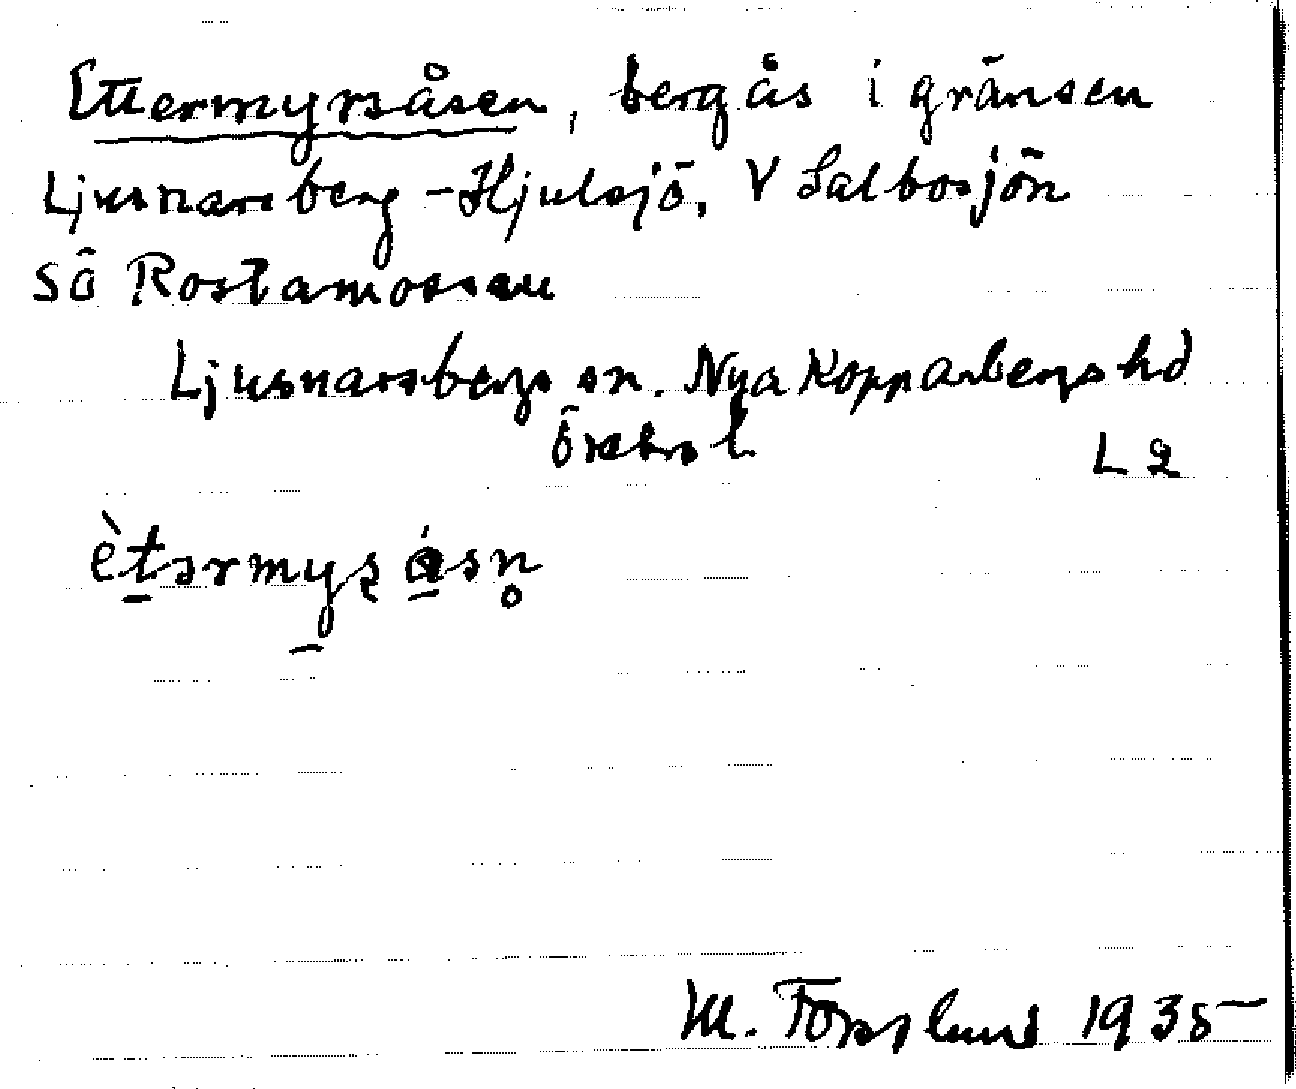 Ettermyrsåsen, bergås i gränsen
Ljusnarsberg - Hjulsjö, V Salbosjön
SÖ Rostamossen
Ljusnarsbergs sn. Nya Kopparbergs hd
Örebro l.
L 2
ètərmyʂ ásn̥
M. Forsslund 1935